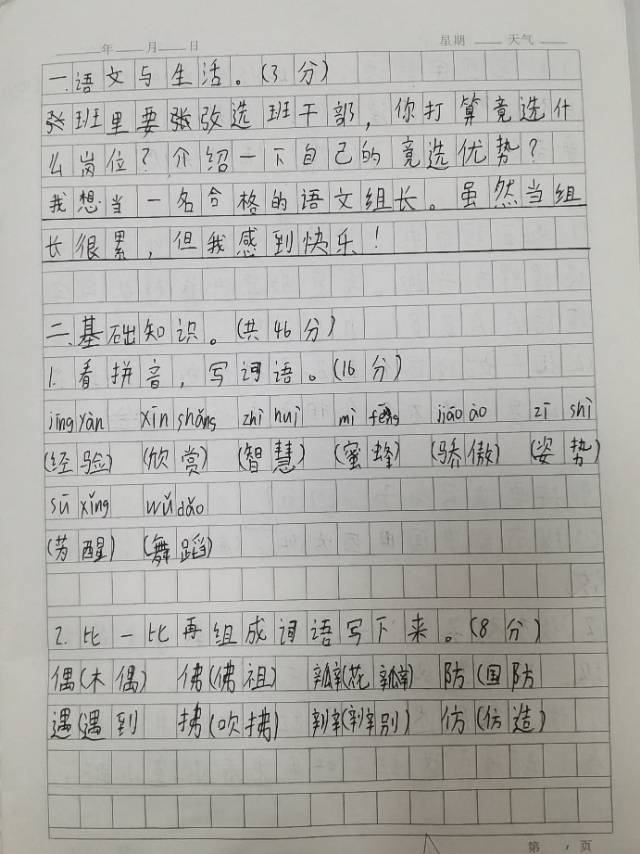 年 月 日 星期 天气
一.语文与生活。(3分)
班里要改选班干部，你打算竞选什
么岗位？介绍一下自己的竞选优势？
我想当一名合格的语文组长。虽然当组
长很累，但我感到快乐！
二.基础知识。(共46分)
1.看拼音，写词语。(16分)
jīng yàn xīn shǎng zhì huì mì fēng jiāo ào zī shì
(经验) (欣赏) (智慧) (蜜蜂) (骄傲) (姿势)
sū xǐng wǔ dǎo
(苏醒) (舞蹈)
2.比一比再组成词语写下来。(8分)
偶(木偶) 佛(佛祖) 瓣(花瓣) 防(国防
遇(遇到 拂(吹拂) 辨(辨别) 仿(仿造)
第 页